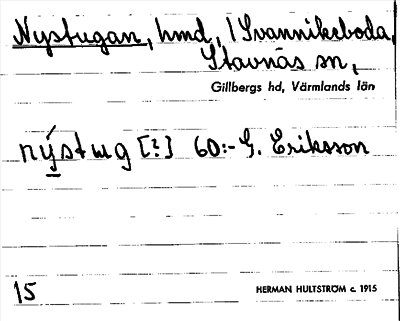 Nystugan, hmd, i Svannikeboda,
Stavnäs sn,
Gillbergs hd, Värmlands län
nýstug [?] 60:- G. Eriksson
15 HERMAN HULTSTRÖM c. 1915